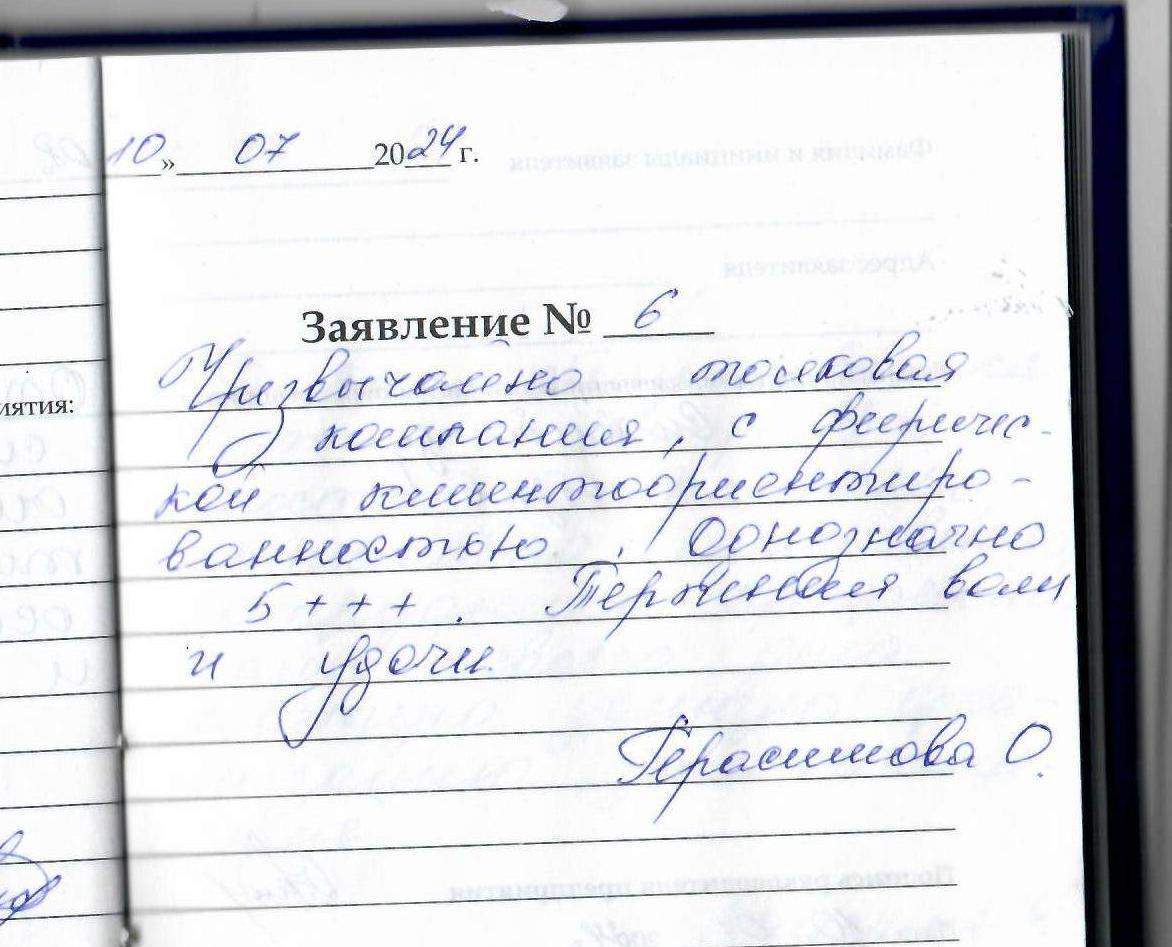 10 » 07 2024 г.
Заявление № 6
Чрезвычайно толковая
компания, с фееричес-
кой клиентоориентиро-
ванностью. Однозначно
5+++. Терпения вам
и удачи.
Герасимова О.
иятия: